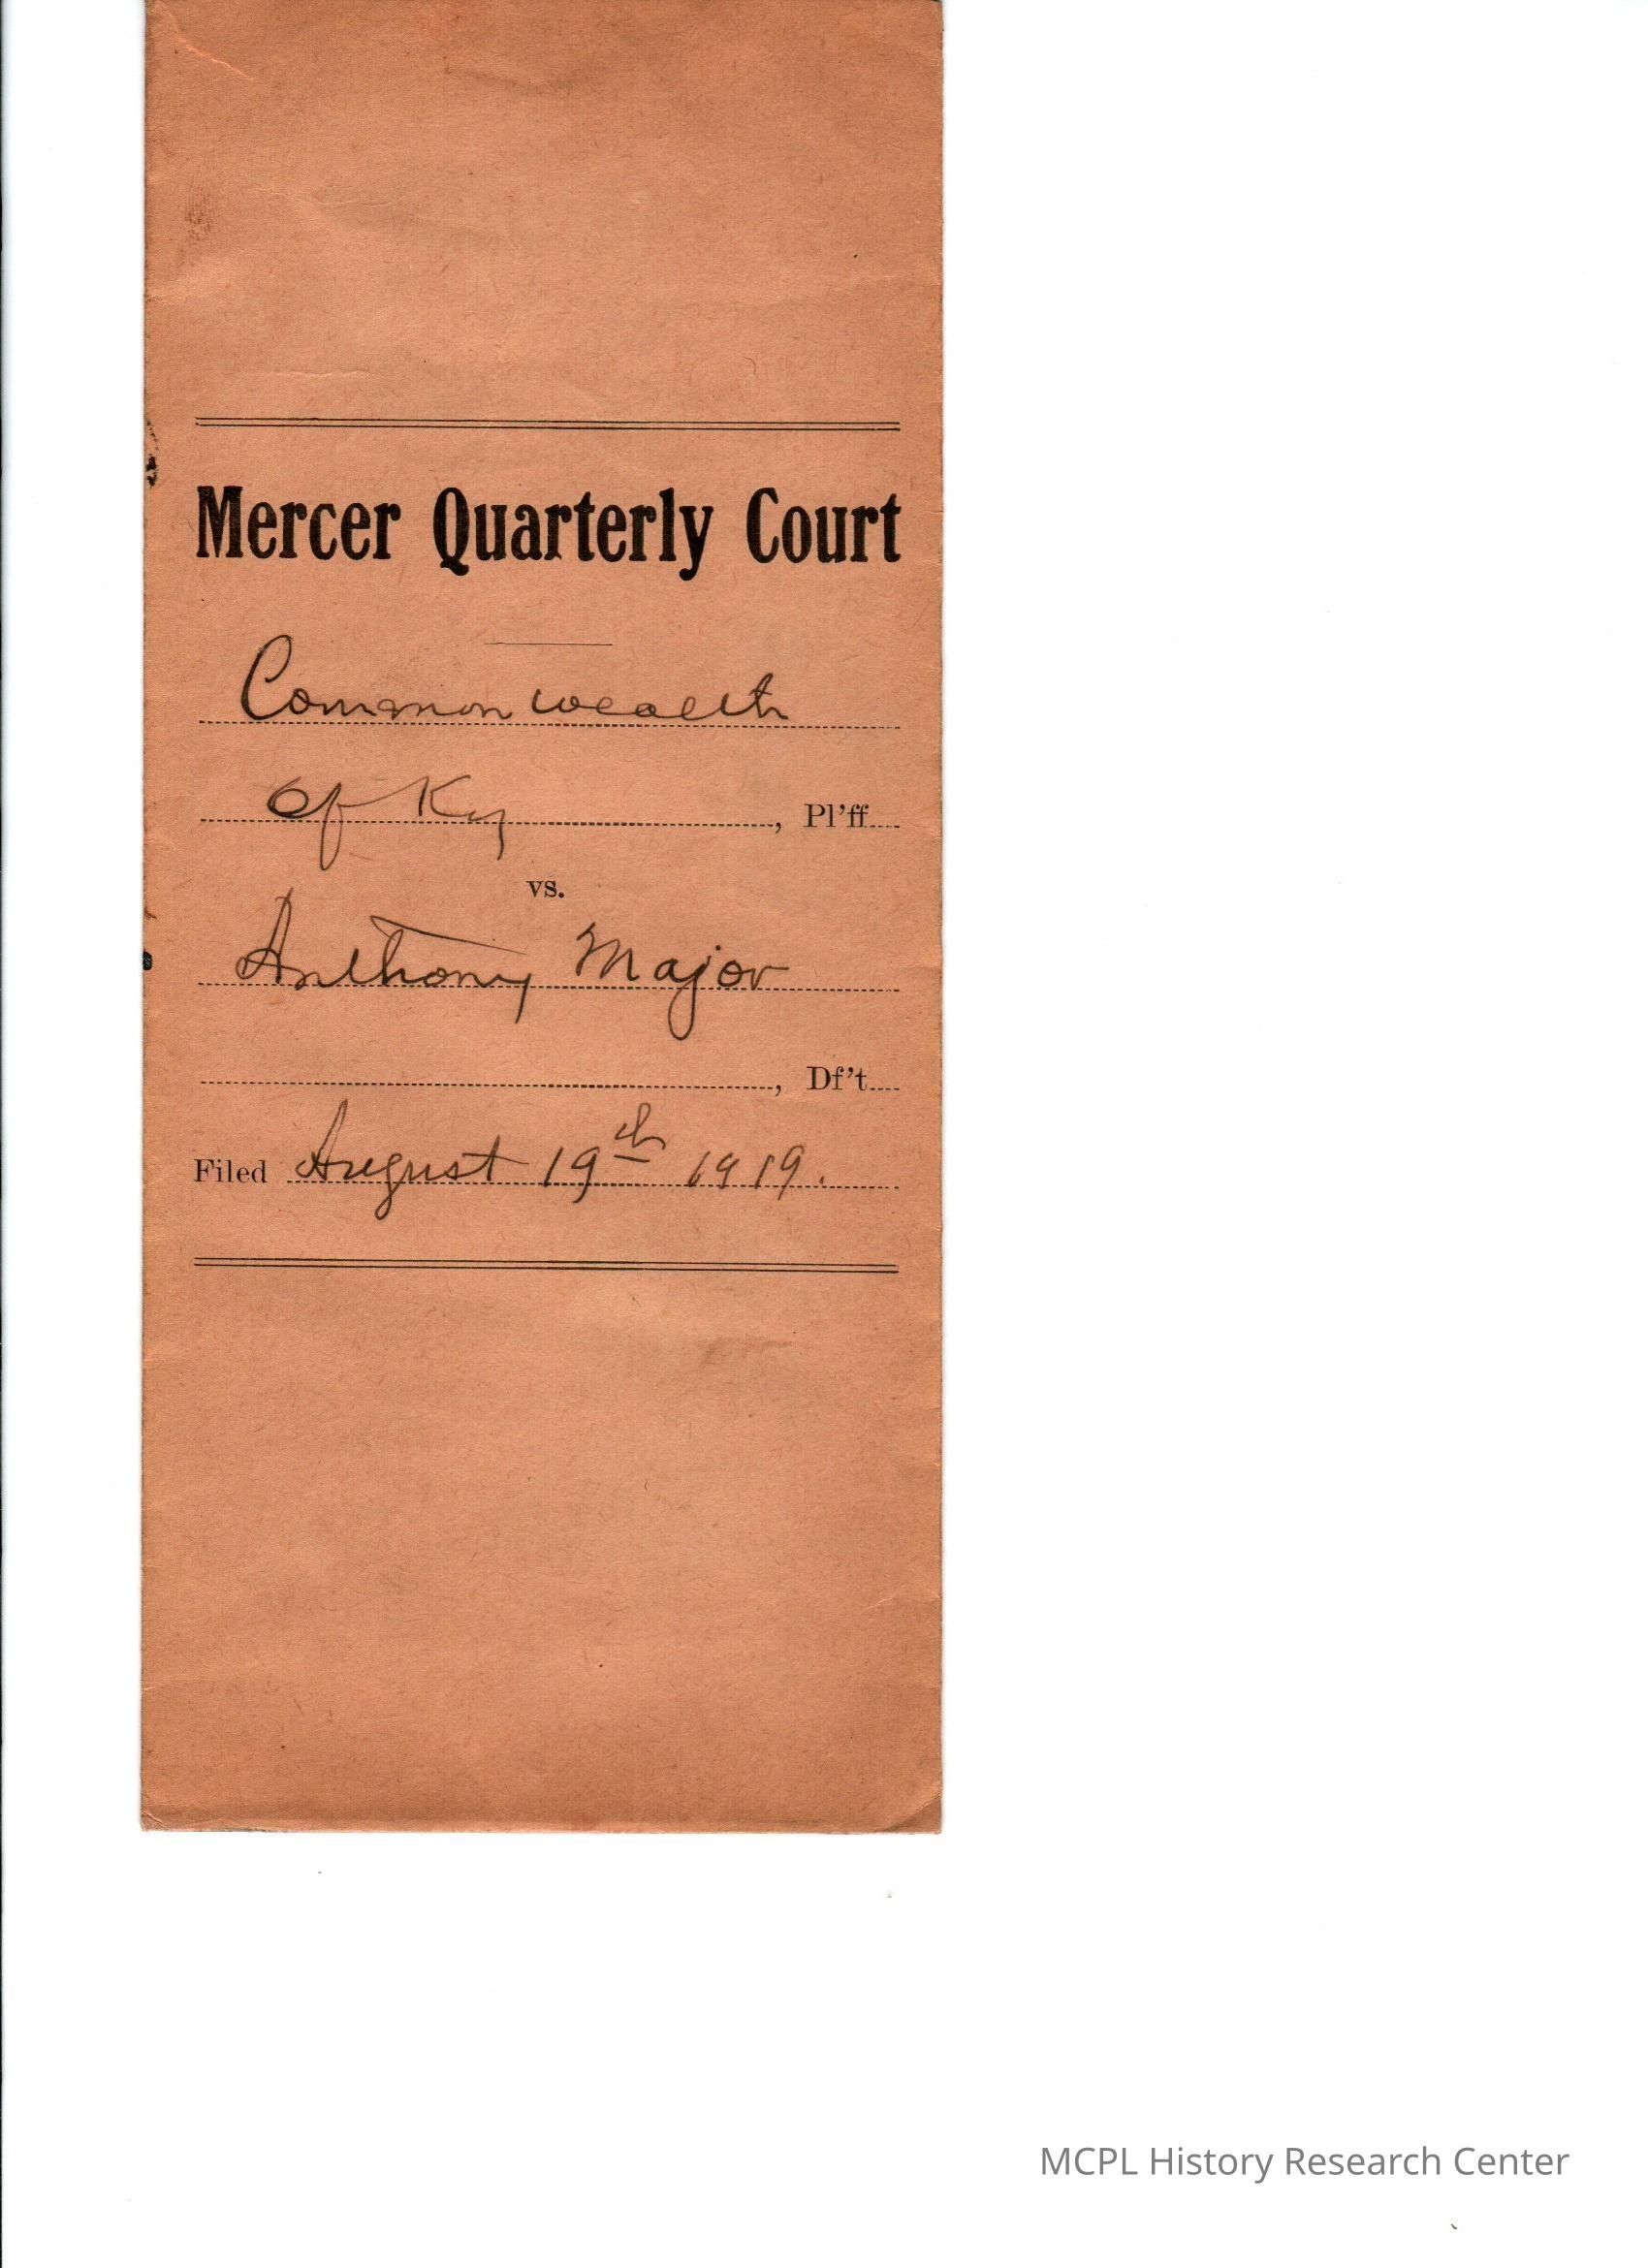 Mercer Quarterly Court
Commonwealth
of Ky, Pl'ff
vs.
Anthony Major
, Df't
Filed August 19th 1919.
MCPL History Research Center